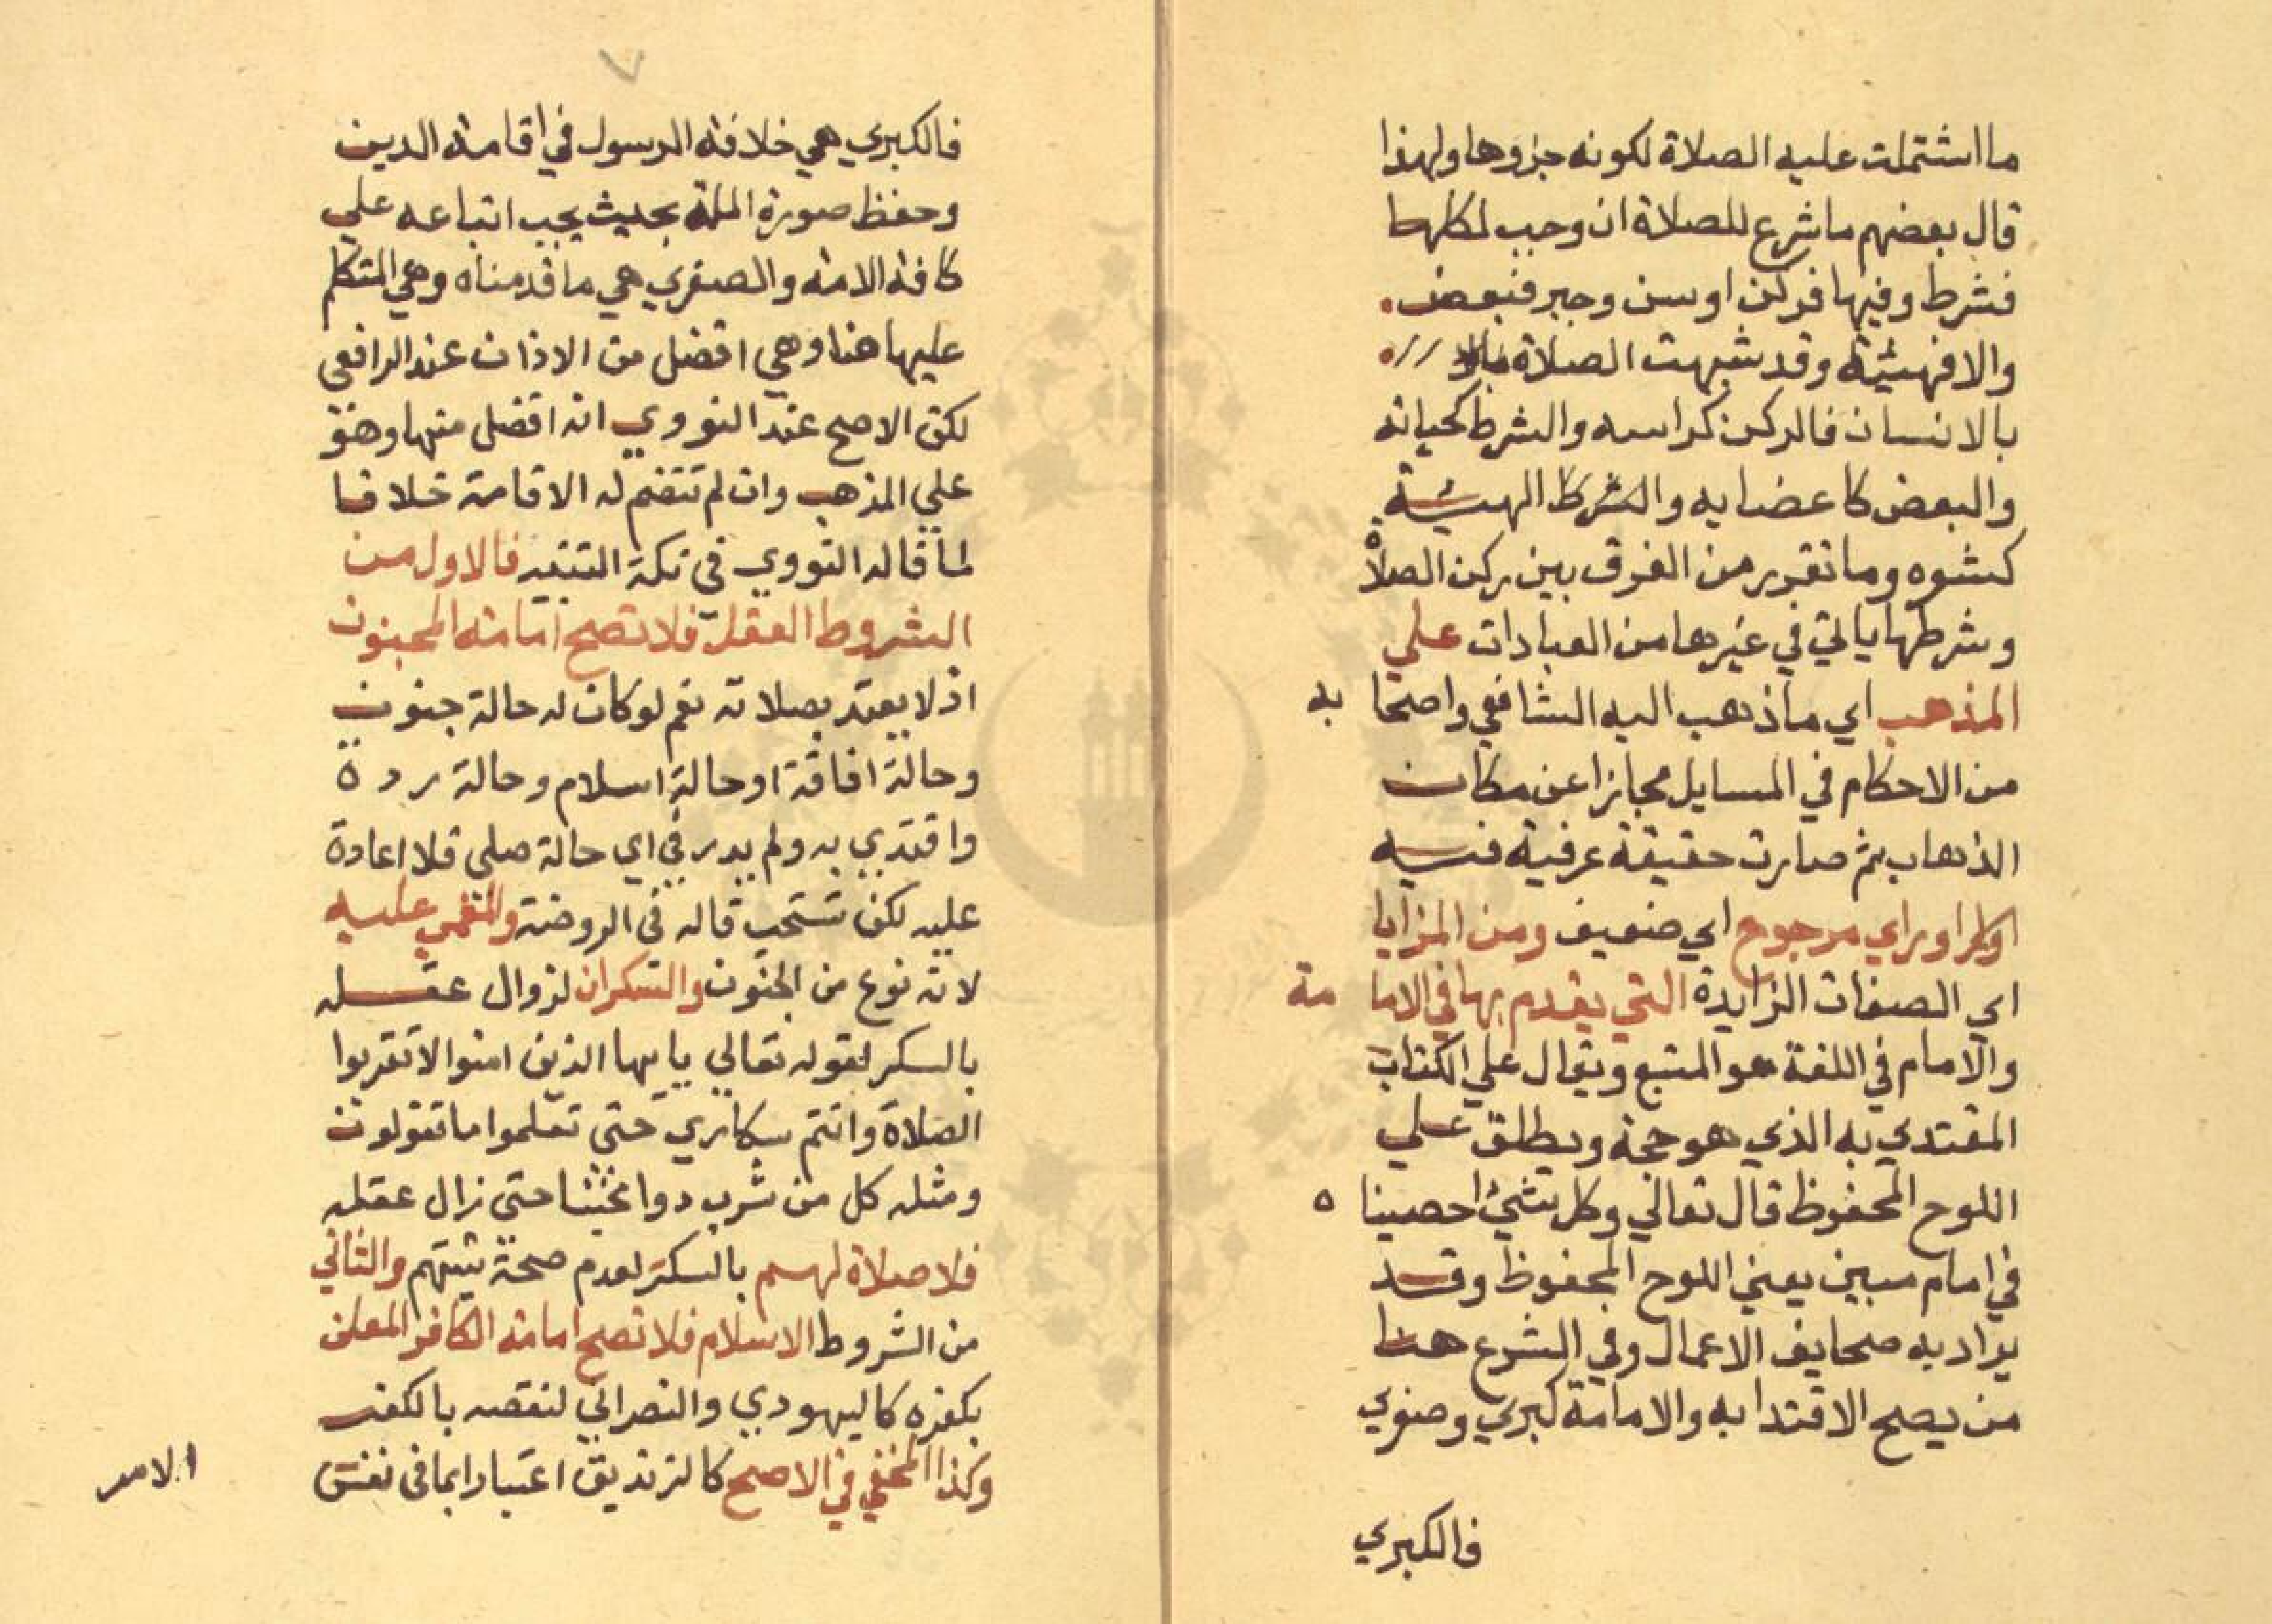 ما اشتملت عليه الصلاة لكونه جزوها ولهذا
قال بعضهم ما شرع للصلاة ان وجب لكلها
فشرط وفيها فركن او سن وجبر فبعض
والا فهيئة وقد شبهت الصلاة
بالانسان فالركن كراسه والشرط كحياته
والبعض كاعضايه والهيئة
كشوه وما تقرر من الفرق بين ركن الصلاة
وشرطها ياتي في غيرها من العبادات علي
المذهب اي ما ذهب اليه الشافعي واصحابه
من الاحكام في المسايل مجازا عن مكان
الذهاب ثم صارت حقيقة عرفية فيه
او راي مرجوح اي ضعيف ومن المزايا
اي الصفات الزايدة التي يقدم بها في الامامة
والامام في اللغة هو المتبع ويقال علي الكتاب
المقتدي به الذي هو حجة ويطلق علي
اللوح المحفوظ قال تعالي وكل شيء احصيناه
في امام مبين يعني اللوح المحفوظ وقد
يراد به صحايف الاعمال وفي الشرع هنا
من يصح الاقتدا به والامامة كبري وصغري
فالكبري
٧
فالكبري هي خلافة الرسول في اقامة الدين
وحفظ صورة الملة بحيث يجب اتباعه علي
كافة الامة والصغري هي ما قدمناه وهي المتكلم
عليها هنا وهي افضل من الاذان عند الرافعي
لكن الاصح عند النووي انه افضل منها وهو
علي المذهب وان لم تنضم له الاقامة خلافا
لما قاله النووي في نكة التنبيه فالاول من
الشروط العقل فلا تصح امامة المجنون
اذ لا يعتد بصلاته نعم لو كان له حالة جنون
وحالة افاقة او حالة اسلام وحالة ردة
واقتدي به ولم يدر في اي حالة صلي فلا اعادة
عليه لكن تستحب قاله في الروضة والمغمي عليه
لانه نوع من الجنون والسكران لزوال عقله
بالسكر لقوله تعالي يايها الذين امنوا لا تقربوا
الصلاة وانتم سكاري حتي تعلموا ما تقولون
ومثله كل من شرب دوا مجننا حتي زال عقله
فلا صلاة لهم بالسكر لعدم صحة نيتهم والثاني
من الشروط الاسلام فلا تصح امامة الكافر المعلن
بكفره كاليهودي والنصراني لنقصه بالكفر
وكذا المخفي في الاصح كالزنديق اعتبارا بما في نفس
الامر